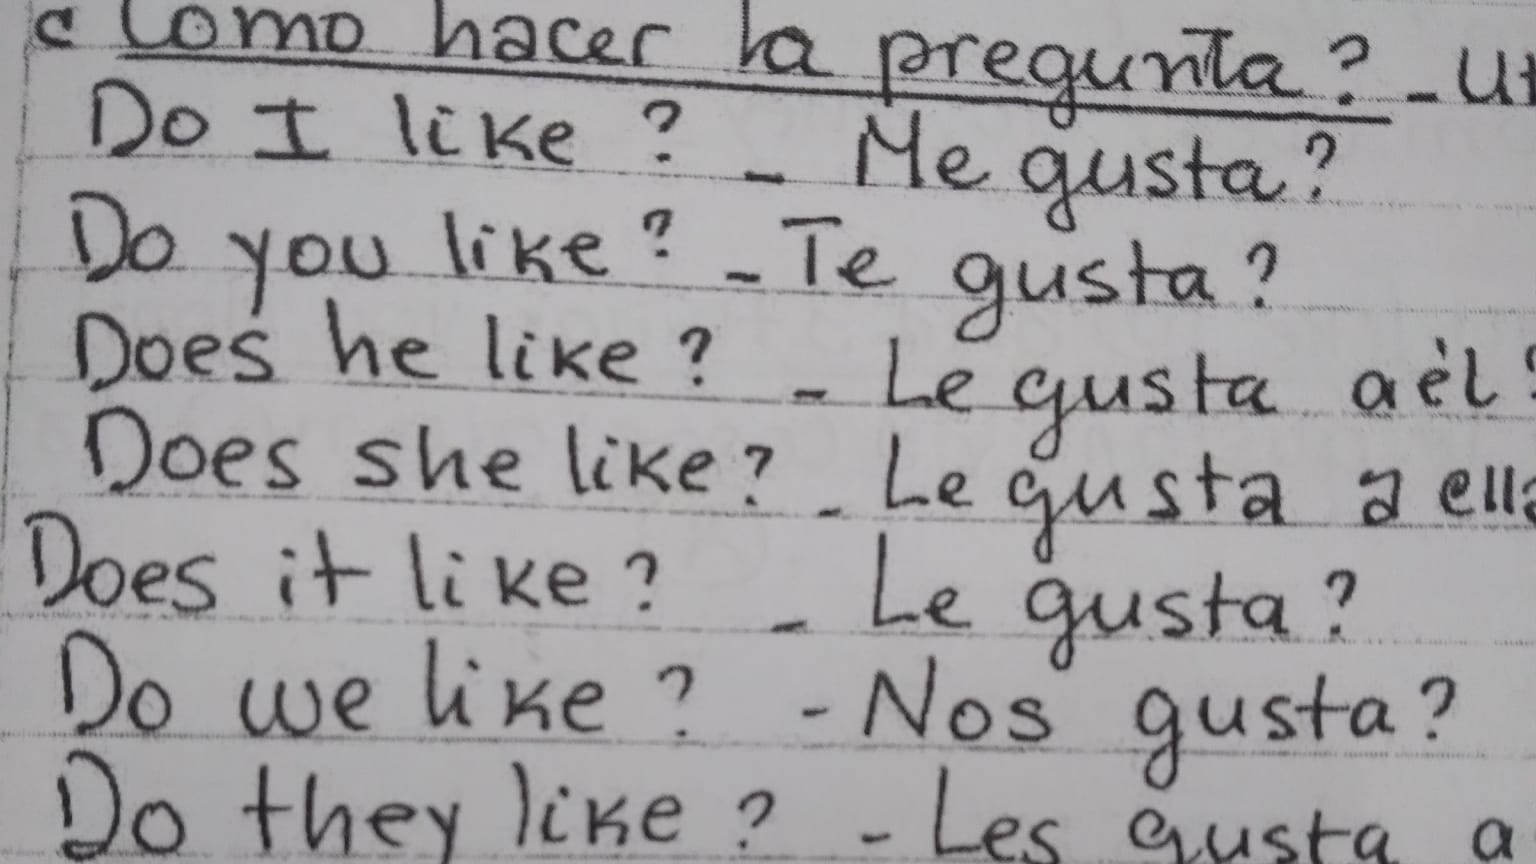 c Como hacer la pregunta? - Ut
Do I like? - Me gusta?
Do you like? - Te gusta?
Does he like? - Le gusta a él?
Does she like? - Le gusta a ella
Does it like? - Le gusta?
Do we like? - Nos gusta?
Do they like? - Les gusta a